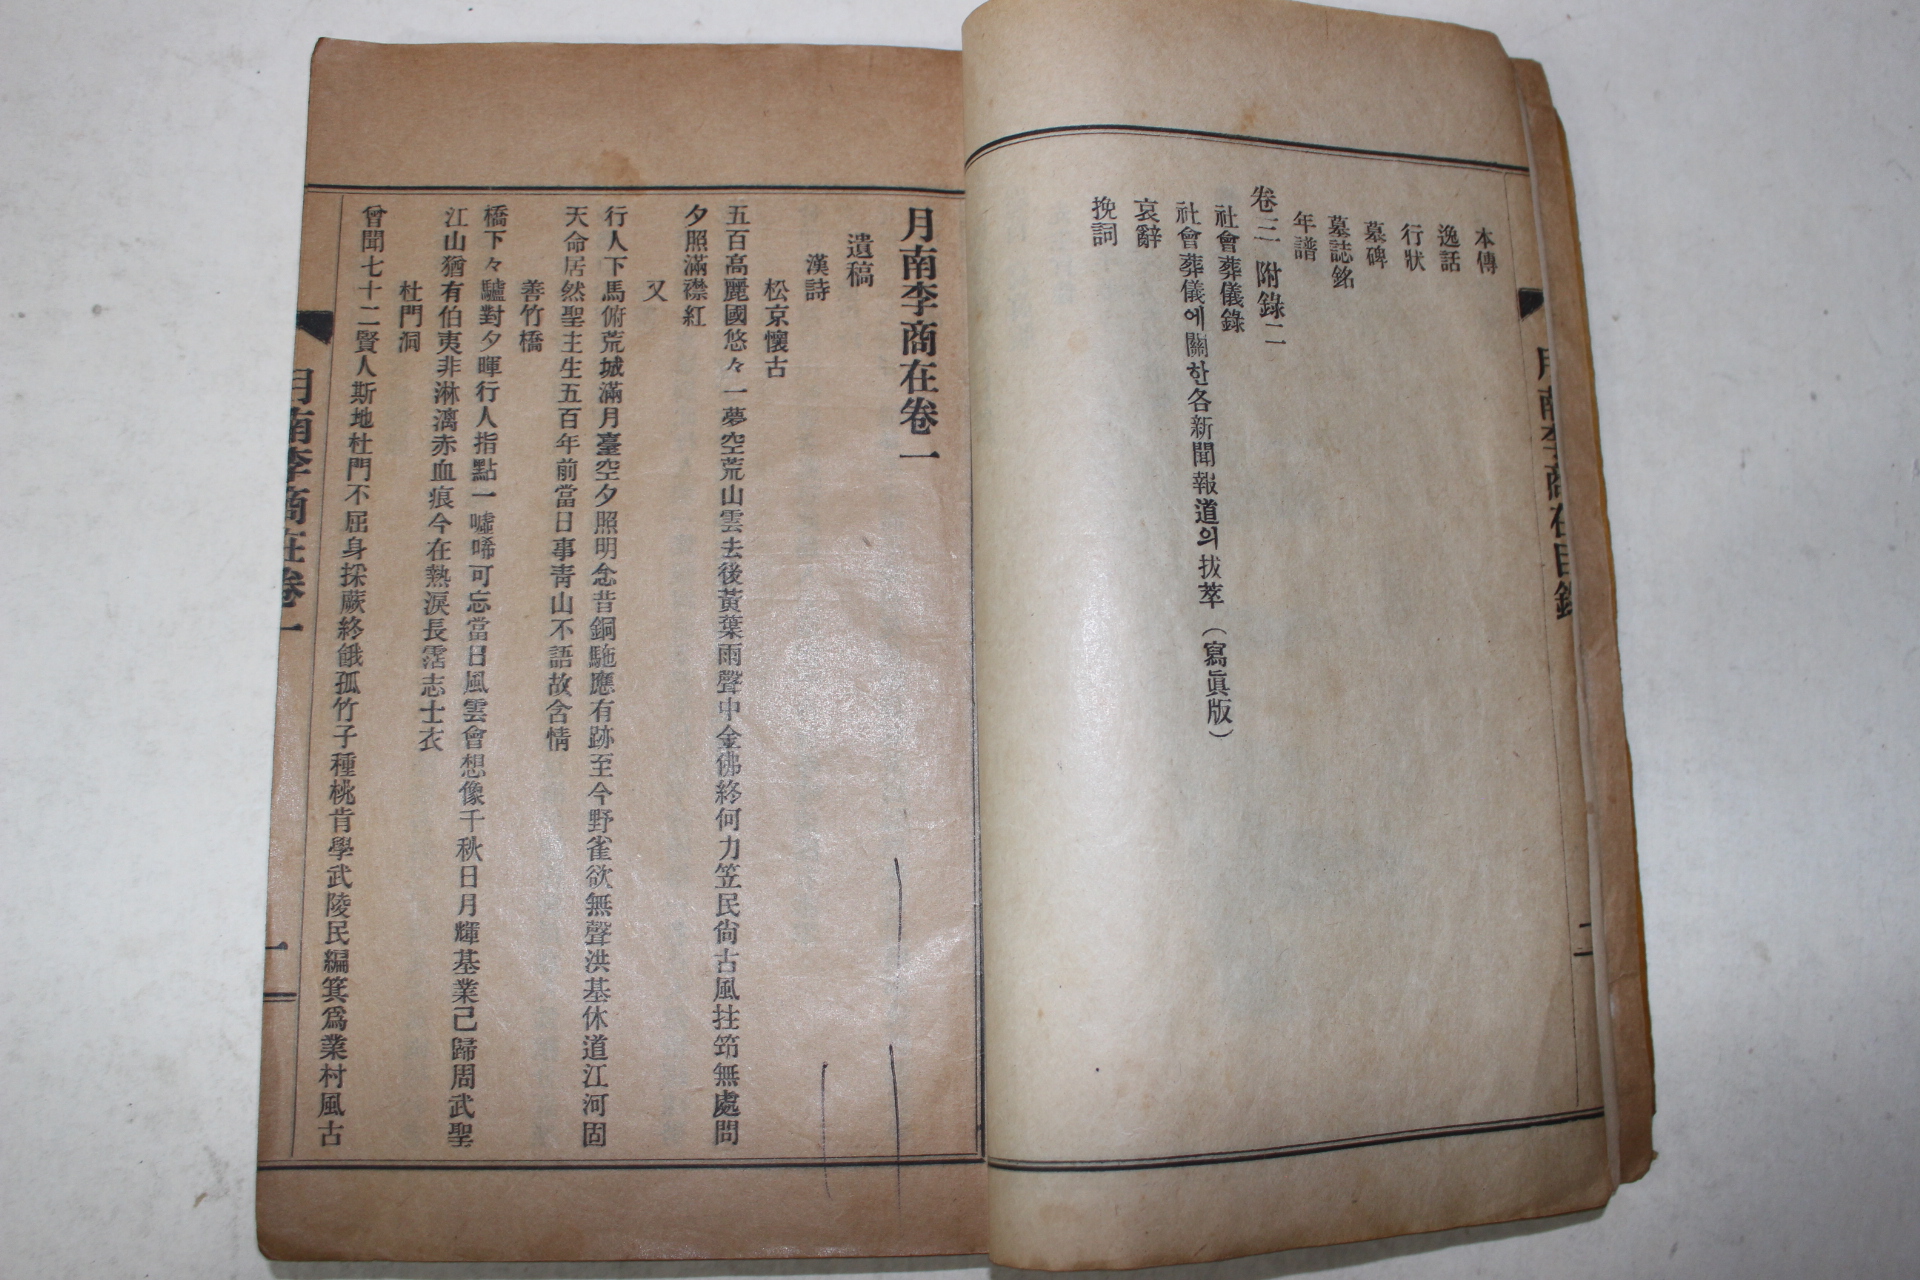 本傳
逸話
行狀
墓碑
墓誌銘
年譜
卷三 附錄二
社會葬儀錄
社會葬儀에關한各新聞報道의拔萃(寫眞版)
哀辭
挽詞
月南李商在卷一
遺稿
漢詩
松京懷古
五百高麗國悠々一夢空荒山雲去後黃葉雨聲中金佛終何力笠民尙古風拄筇無處問
夕照滿襟紅
又
行人下馬俯荒城滿月臺空夕照明念昔銅駞應有跡至今野雀欲無聲洪基休道江河固
天命居然聖主生五百年前當日事靑山不語故含情
善竹橋
橋下々驢對夕暉行人指點一噓唏可忘當日風雲會想像千秋日月輝基業已歸周武聖
江山猶有伯夷非淋漓赤血痕今在熱淚長霑志士衣
杜門洞
曾聞七十二賢人斯地杜門不屈身採蕨終餓孤竹子種桃肯學武陵民編箕爲業村風古
月南李商在卷一
一